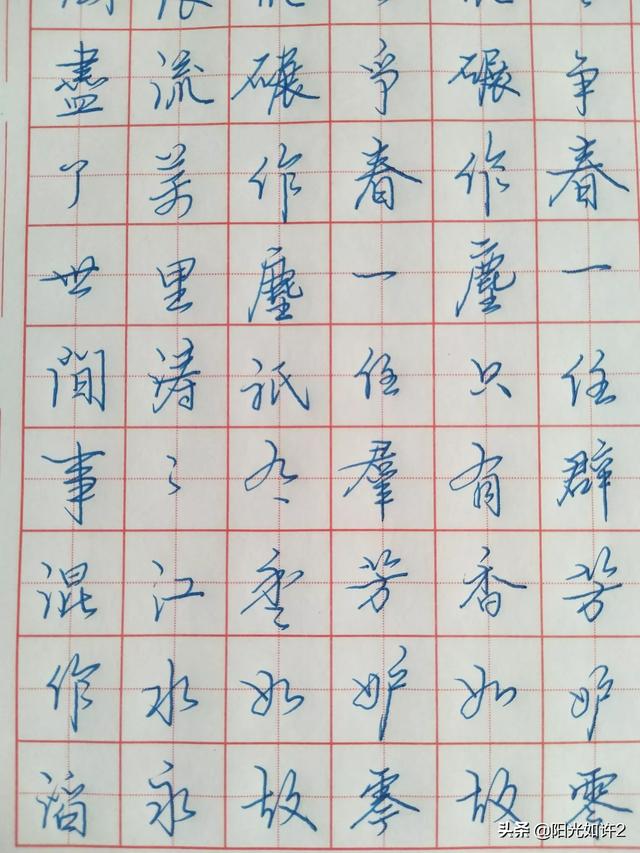 争春一任群芳妒零
碾作塵只有香如故
爭春一任羣芳妒零
碾作塵祇有香如故
流萬里濤々江水永
盡了世間事混作滔
头条 @阳光如许2